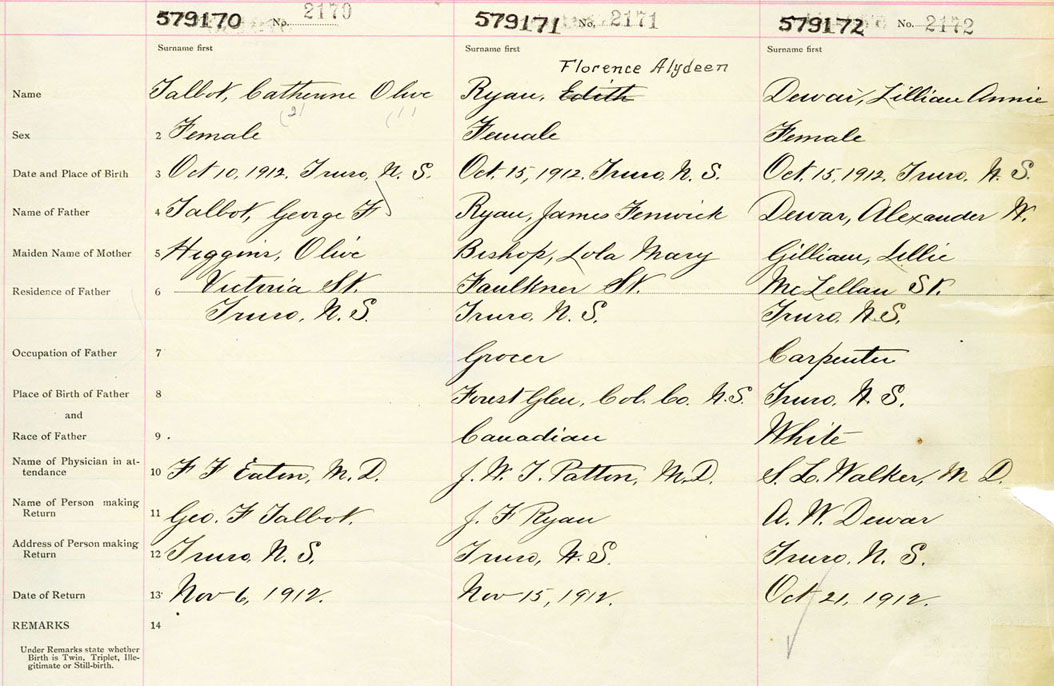 579170 No. 2170 579171 No. 2171 579172 No. 2172
Surname first Surname first Surname first
Florence Alydeen
Name Talbot, Catherine Olive Ryan, Edith Dewar, Lillian Annie
(2) (1)
Sex 2 Female Female Female
Date and Place of Birth 3 Oct 10, 1912. Truro, N. S. Oct. 15, 1912. Truro, N. S. Oct. 15, 1912. Truro, N. S.
Name of Father 4 Talbot, George F Ryan, James Fenwick Dewar, Alexander W.
Maiden Name of Mother 5 Higgins, Olive Bishop, Lola Mary Gilliam, Lillie
Victoria St. Faulkner St. McLellan St.
Residence of Father 6
Truro, N. S. Truro, N. S. Truro, N. S.
Occupation of Father 7 Grocer Carpenter
Place of Birth of Father 8 Forest Glen, Col. Co. N. S. Truro, N. S.
and
Race of Father 9 Canadian White
Name of Physician in at-
tendance 10 F F Eaton, M. D. J. W. T. Patton, M. D. S. L. Walker, M. D.
Name of Person making
Return 11 Geo. F Talbot. J. F Ryan A. W. Dewar
Address of Person making
Return 12 Truro, N. S. Truro, N. S. Truro, N. S.
Date of Return 13 Nov 6, 1912. Nov 15, 1912. Oct 21, 1912.
REMARKS 14
Under Remarks state whether
Birth is Twin, Triplet, Ille-
gitimate or Still-birth.